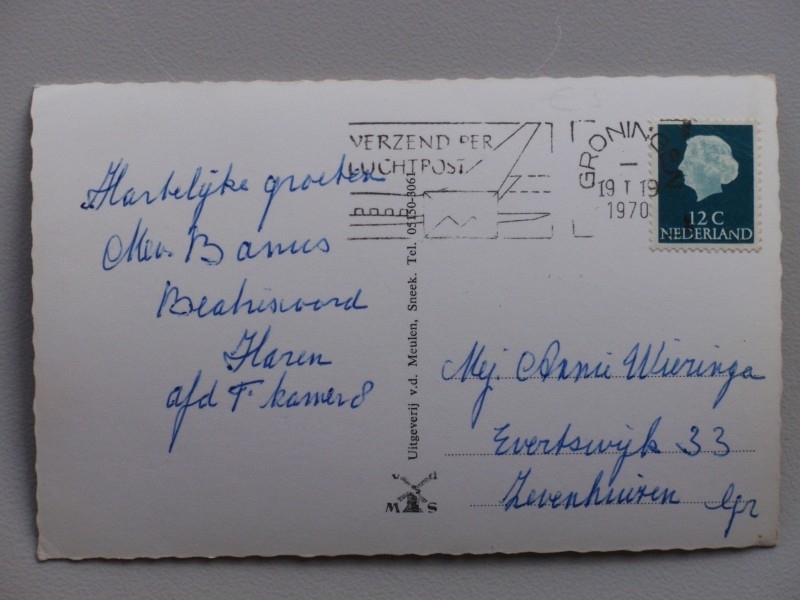 Hartelijke groeten
Mev. Banus
Beatrixoord
Haren
afd F. kamer 8
VERZEND PER
LUCHTPOST
GRONINGEN
19 I 19
1970
12 C
NEDERLAND
Uitgeverij v.d. Meulen, Sneek. Tel. 05150-3061
v d
M S
Mej. Annie Wieringa
Evertswijk 33
Zevenhuizen Gr